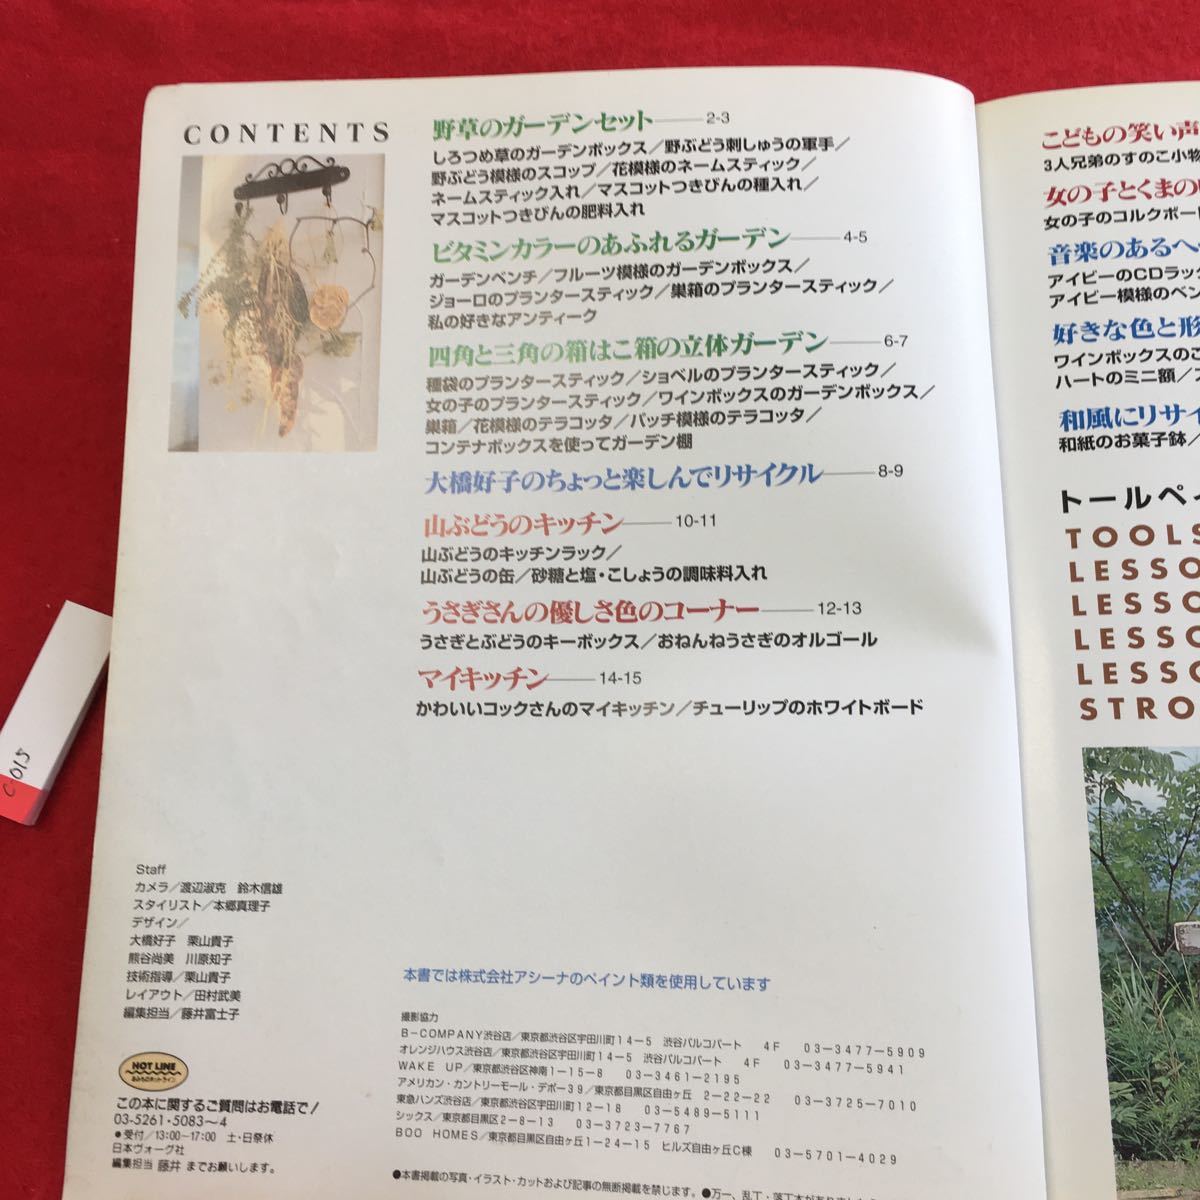 CONTENTS
野草のガーデンセット 2-3
しろつめ草のガーデンボックス／野ぶどう刺しゅうの軍手／
野ぶどう模様のスコップ／花模様のネームスティック／
ネームスティック入れ／マスコットつきびんの種入れ／
マスコットつきびんの肥料入れ
ビタミンカラーのあふれるガーデン 4-5
ガーデンベンチ／フルーツ模様のガーデンボックス／
ジョーロのプランタースティック／巣箱のプランタースティック／
私の好きなアンティーク
四角と三角の箱はこ箱の立体ガーデン 6-7
種袋のプランタースティック／ショベルのプランタースティック／
女の子のプランタースティック／ワインボックスのガーデンボックス／
巣箱／花模様のテラコッタ／パッチ模様のテラコッタ／
コンテナボックスを使ってガーデン棚
大橋好子のちょっと楽しんでリサイクル 8-9
山ぶどうのキッチン 10-11
山ぶどうのキッチンラック／
山ぶどうの缶／砂糖と塩・こしょうの調味料入れ
うさぎさんの優しさ色のコーナー 12-13
うさぎとぶどうのキーボックス／おねんねうさぎのオルゴール
マイキッチン 14-15
かわいいコックさんのマイキッチン／チューリップのホワイトボード
Staff
カメラ／渡辺淑克 鈴木信雄
スタイリスト／本郷真理子
デザイン／
大橋好子 栗山貴子
熊谷尚美 川原知子
技術指導／栗山貴子
レイアウト／田村武美
編集担当／藤井富士子
HOT LINE
あみもののホットライン
この本に関するご質問はお電話で！
03-5261・5083〜4
●受付／13:00〜17:00 土・日祭休
日本ヴォーグ社
編集担当 藤井 までお願いします。
本書では株式会社アシーナのペイント類を使用しています
撮影協力
B-COMPANY渋谷店／東京都渋谷区宇田川町14-5 渋谷パルコパート 4F 03-3477-5909
オレンジハウス渋谷店／東京都渋谷区宇田川町14-5 渋谷パルコパート 4F 03-3477-5941
WAKE UP／東京都渋谷区神南1-15-8 03-3461-2195
アメリカン・カントリーモール・デポー39／東京都目黒区自由ヶ丘 2-22-22 03-3725-7010
東急ハンズ渋谷店／東京都渋谷区宇田川町12-18 03-5489-5111
シックス／東京都目黒区2-8-13 03-3723-7767
BOO HOMES／東京都目黒区自由ヶ丘1-24-15 ヒルズ自由ヶ丘C棟 03-5701-4029
●本書掲載の写真・イラスト・カットおよび記事の無断掲載を禁じます。●万一、乱丁・落丁本がありましたら
こどもの笑い声
3人兄弟のすのこ小物
女の子とくまの
女の子のコルクボー
音楽のあるへ
アイビーのCDラッ
アイビー模様のペン
好きな色と形
ワインボックスの
ハートのミニ額／
和風にリサイ
和紙のお菓子鉢／
トールペイ
TOOLS
LESSO
LESSO
LESSO
LESSO
STRO
C-015